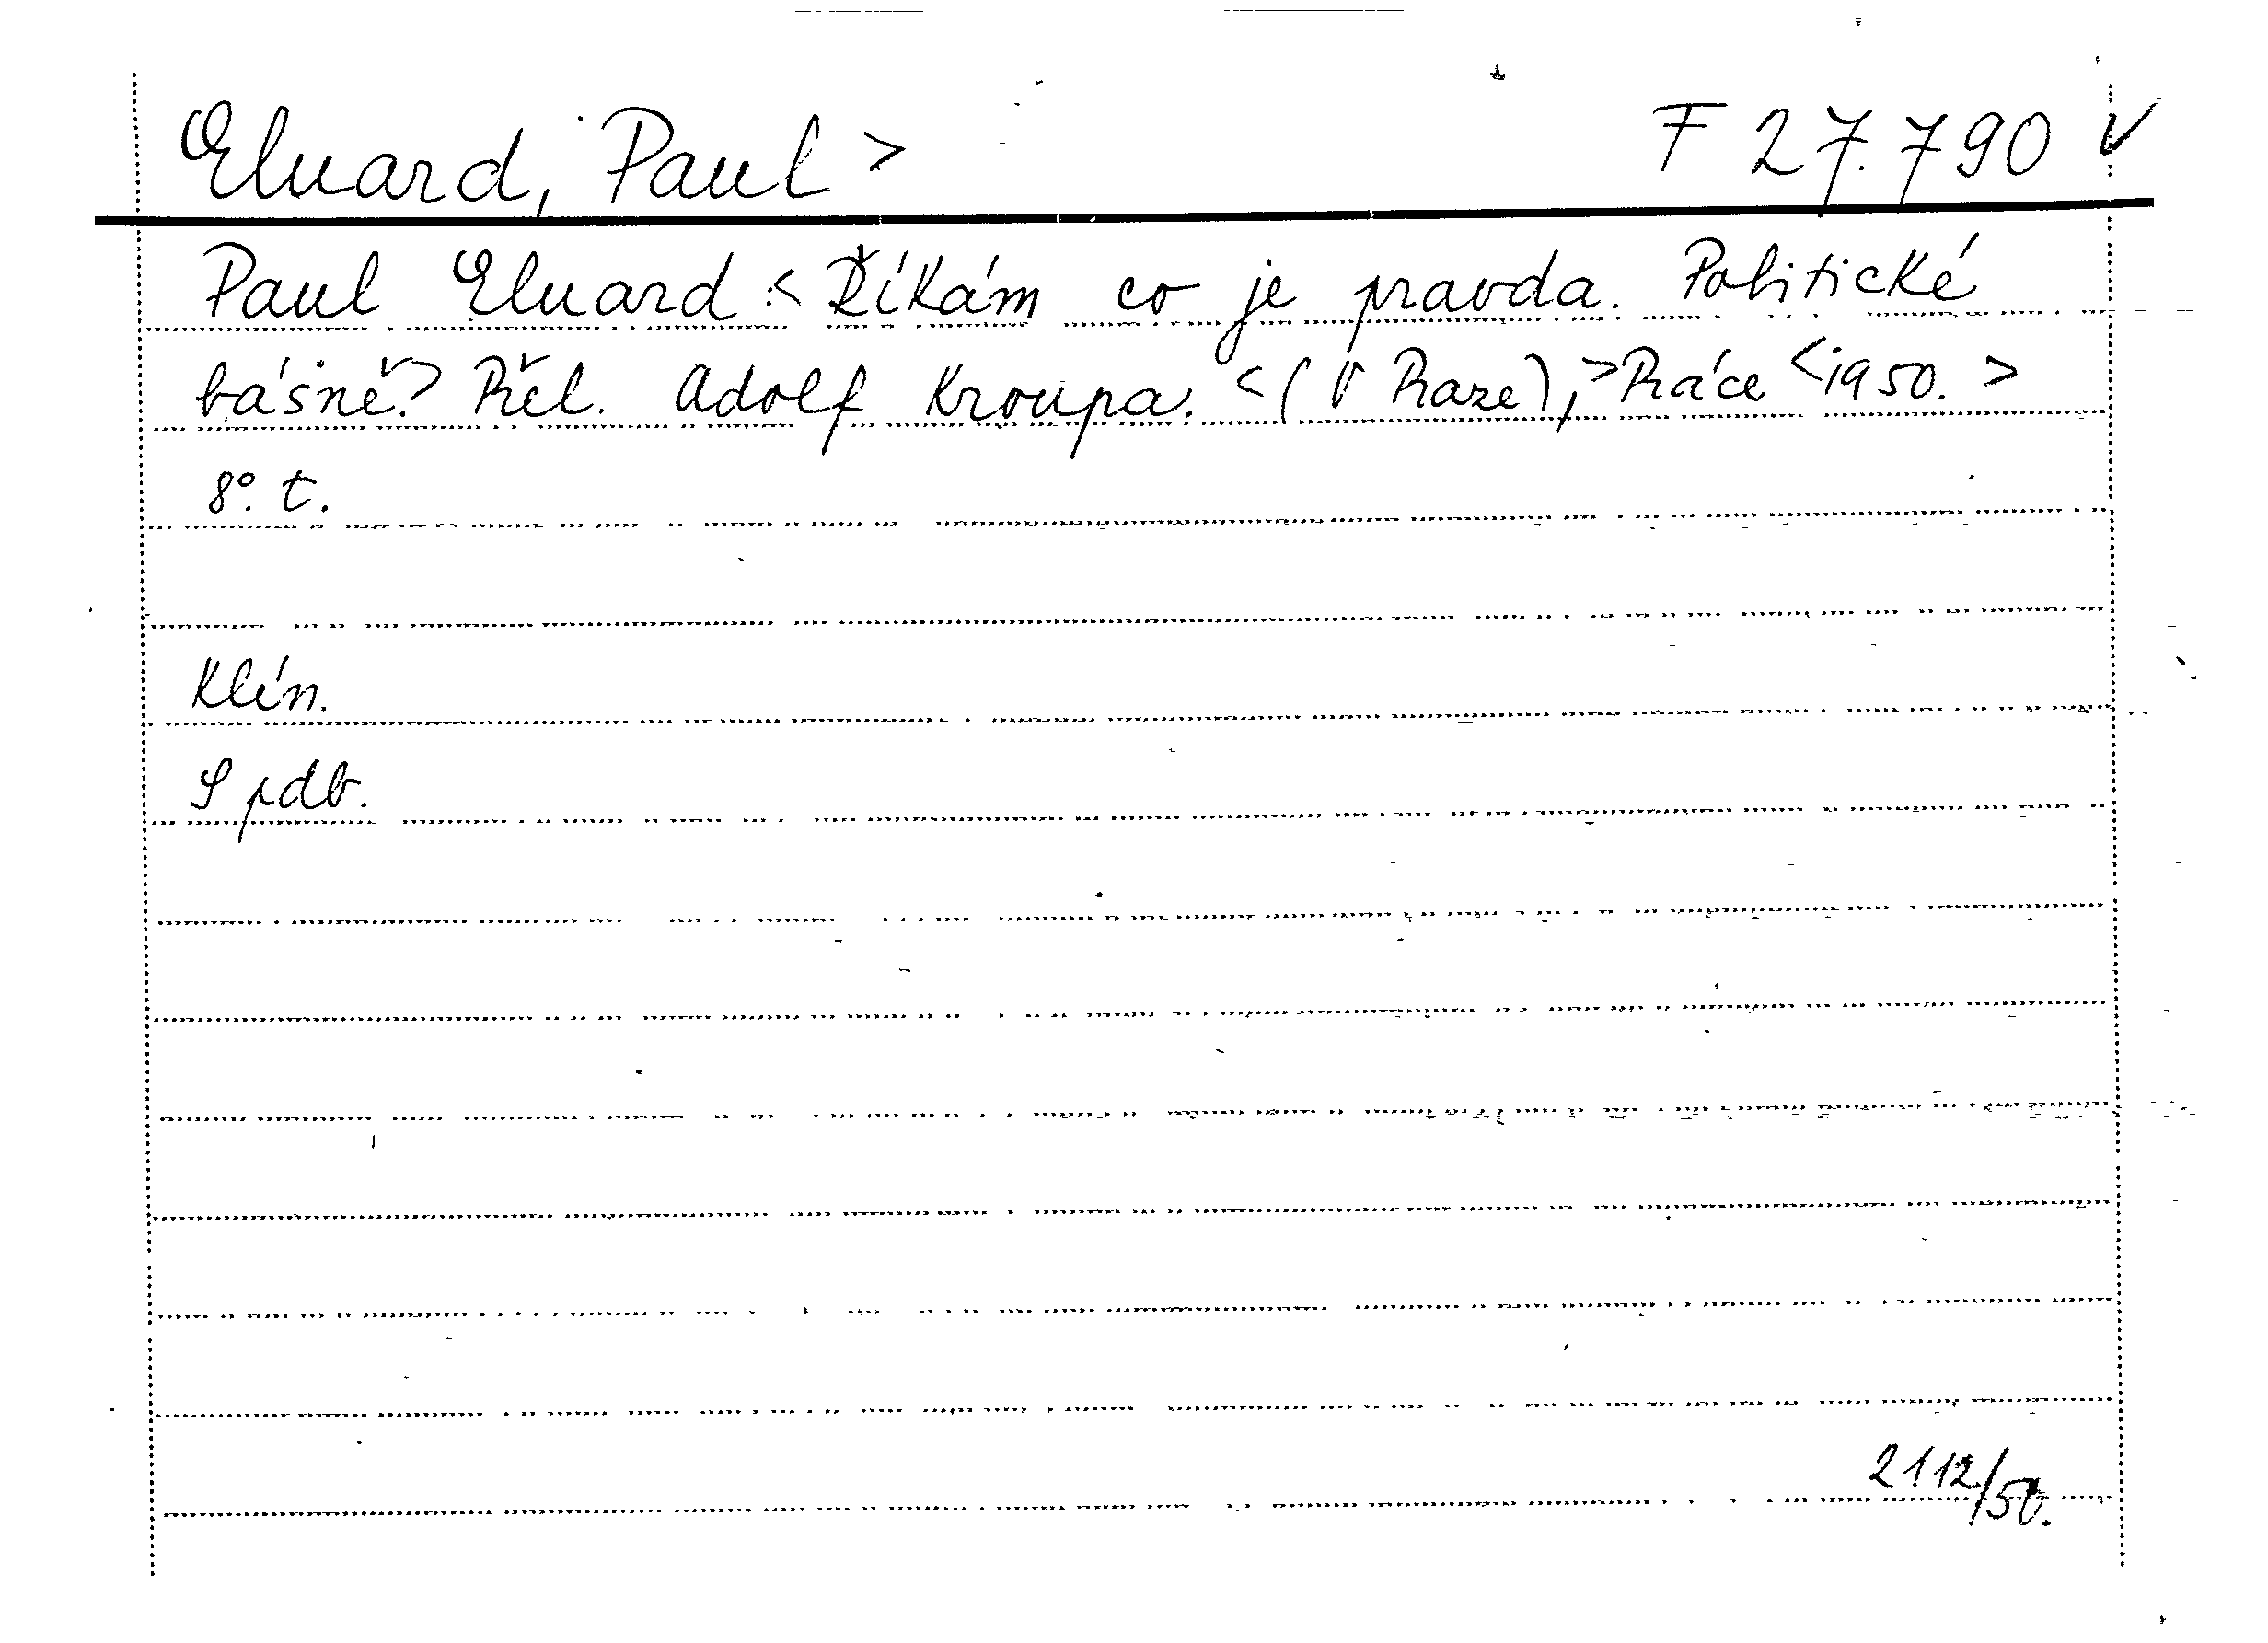 Eluard, Paul > F 27.790 V
Paul Eluard < Říkám co je pravda. Politické
básně.> Přel. Adolf Kroupa. < (V Praze), > Práce < 1950. >
8°. t.
Klín.
S pdb.
2112/50.